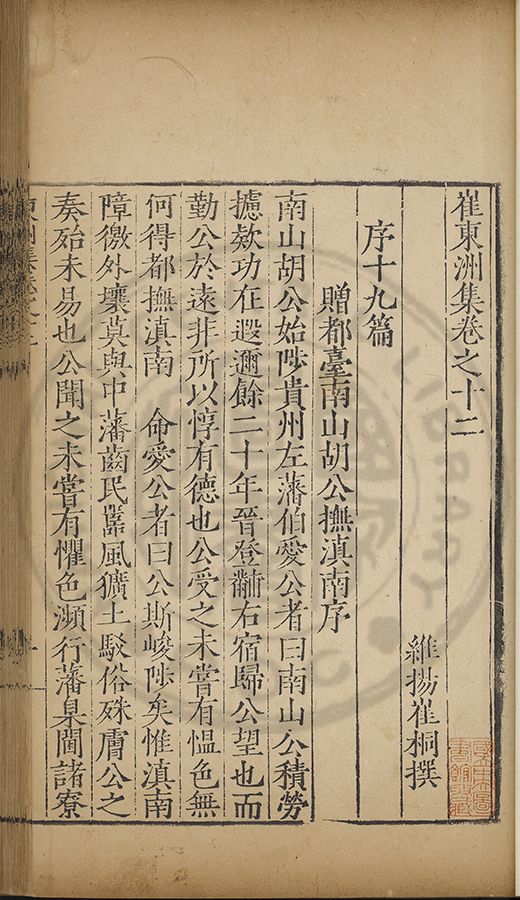 崔東洲集卷之十二
維揚崔桐撰
序十九篇
贈都臺南山胡公撫滇南序
南山胡公始陟貴州左藩伯愛公者曰南山公積勞
攄欵功在遐邇餘二十年晉登黼右宿歸公望也而
勤公於遠非所以惇有德也公受之未嘗有慍色無
何得都撫滇南　命愛公者曰公斯峻陟矣惟滇南
障徼外壤莫與中藩齒民嚚風獷土駁俗殊膚公之
奏殆未易也公聞之未嘗有懼色瀕行藩臬閫諸寮